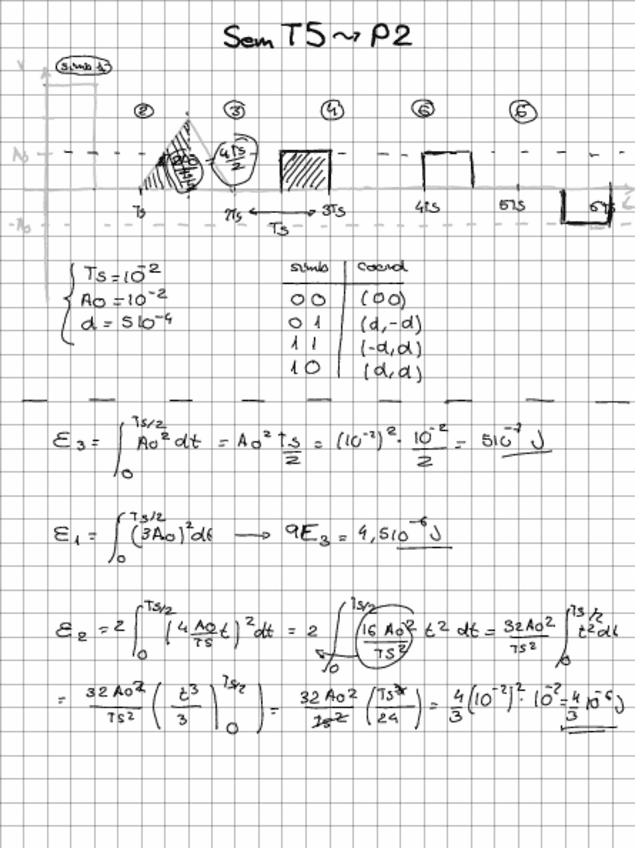 Sem T5 ↝ P2
simb 1
② ③ ④ ⑤ ⑥
A0
4TS/2
-A0
TS 2TS 3TS 4TS 5TS 6TS
TS
TS = 10^-2
A0 = 10^-2
d = 5 10^-4
simb | coord
0 0 | (0 0)
0 1 | (d, -d)
1 1 | (-d, d)
1 0 | (d, d)
ε3 = ∫_0^{TS/2} A0² dt = A0² TS/2 = (10^-2)² · 10^-2/2 = 5 10^-7 J
ε1 = ∫_0^{TS/2} (3A0)² dt → 9E3 = 4,5 10^-6 J
ε2 = 2 ∫_0^{TS/2} (4 A0/TS t)² dt = 2 ∫_0^{TS/2} 16 A0²/TS² t² dt = 32 A0²/TS² ∫_0^{TS/2} t² dt
= 32 A0²/TS² ( t³/3 )|_0^{TS/2} = 32 A0²/TS² (TS³/24) = 4/3 (10^-2)² · 10^-2 = 4/3 10^-6 J